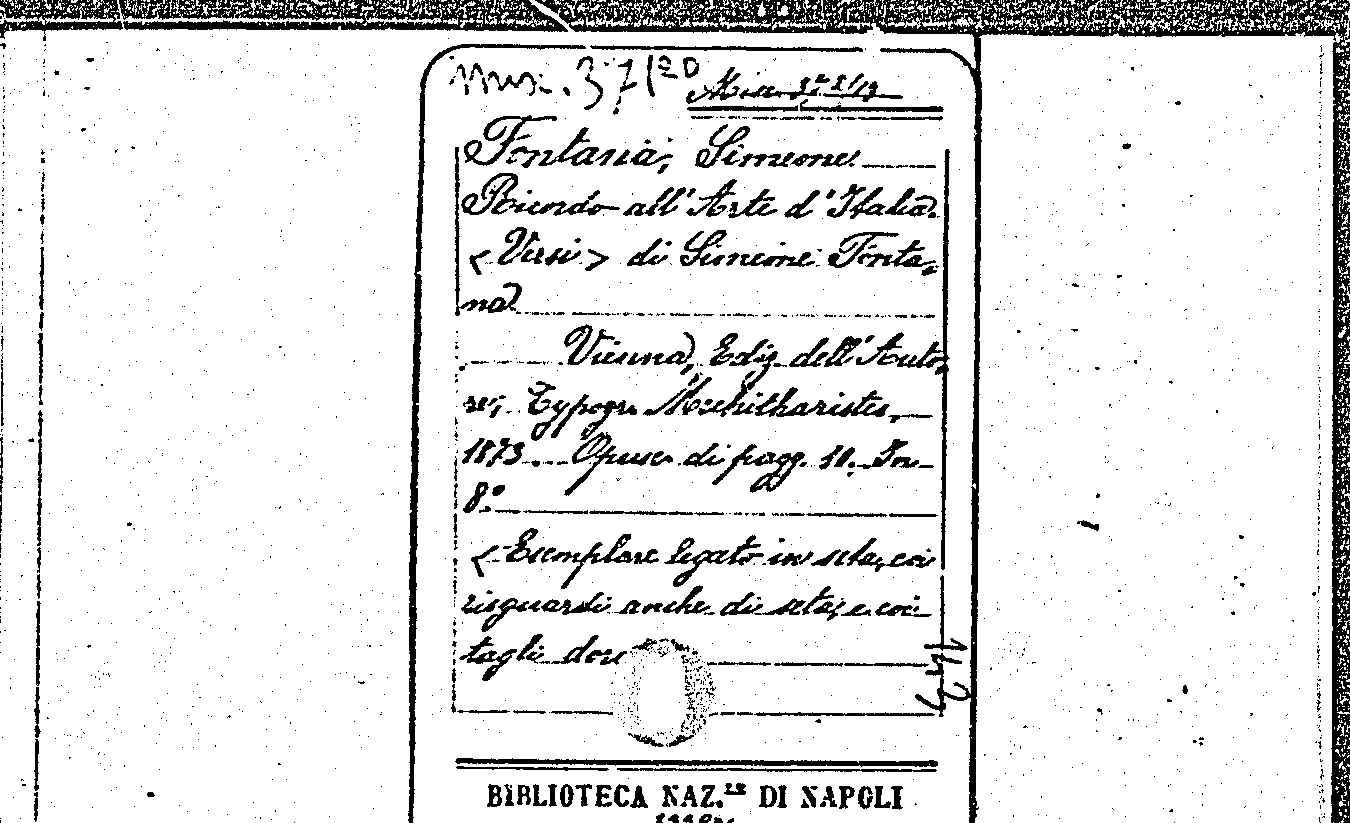 Fontana, Simeone
Ricordo all'Arte d'Italia.
<Versi> di Simeone Fonta-
na
Vienna, Ediz. dell'Auto-
re, Typogr. Mechitharistes,
1873. Opusc. di pagg. 10. In
8°.
<Esemplare legato in seta, coi
risguardi anche di seta, e coi
tagli
BIBLIOTECA NAZ.LE DI NAPOLI